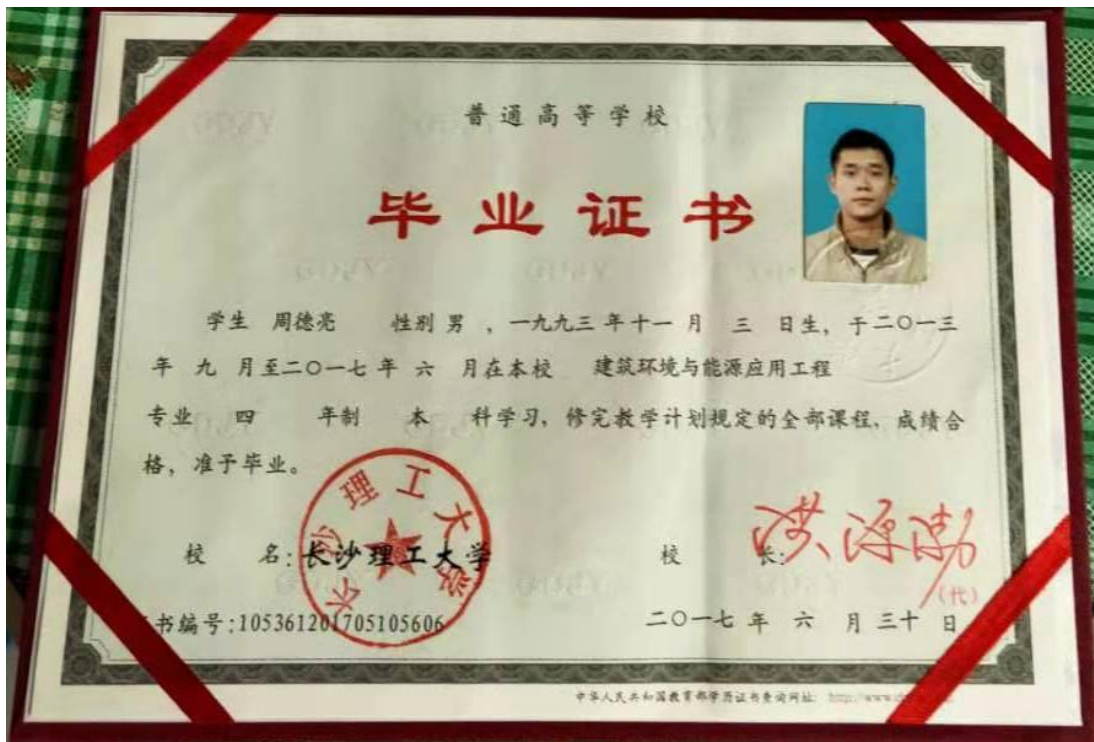 普通高等学校
毕业证书
学生 周德亮 性别 男 ，一九九三 年 十一 月 三 日生，于二〇一三
年 九 月至二〇一七 年 六 月在本校 建筑环境与能源应用工程
专业 四 年制 本 科学习，修完教学计划规定的全部课程，成绩合
格，准予毕业。
理工大学
校 名：长沙理工大学
校 长：洪源渤
（代）
书编号：105361201705105606
二〇一七 年 六 月 三十 日
中华人民共和国教育部学历证书查询网址： http://www